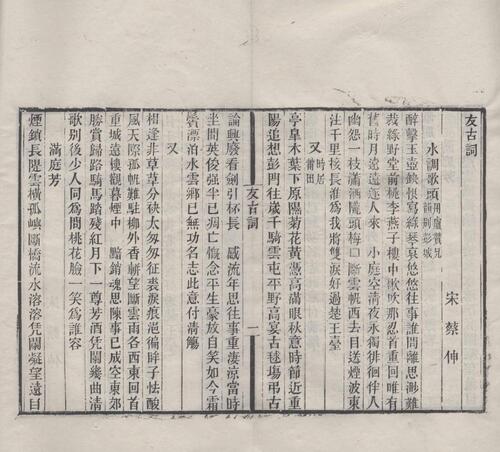 友古詞
宋 蔡 伸
水調歌頭 用盧贊兄韻別彭城
醉擊玉壺缺恨寫綠琴哀悠悠往事誰問離思渺難
裁綠野堂前桃李燕子樓中歌吹那忍首重回唯有
舊時月遠遠逐人來 小庭空清夜永獨徘徊伴人
幽怨一枝瀟洒隴頭梅口斷雲帆西去目送煙波東
注千里接長淮爲我將雙淚好過楚王臺
又 時居莆田
亭皋木葉下原隰菊花黃憑高滿眼秋意時節近重
陽追想彭門往歲千騎雲屯平野高宴古毬場弔古
友古詞
一
論興廢看劍引杯長 感流年思往事重淒涼當時
坐間英俊强半已凋亡慨念平生豪放自笑如今霜
鬢漂泊水雲鄉已無功名志此意付清觴
又
相逢非草草分袂太匆匆征裘淚痕浥徧眸子怯酸
風天際孤帆難駐柳外香輧望斷雲雨各西東回首
重城遠樓觀暮煙中 黯銷魂思陳事已成空東郊
勝賞歸路騎馬踏殘紅月下一尊芳酒凭闌幾曲清
歌別後少人同爲問桃花臉一笑爲誰容
滿庭芳
煙鎖長隄雲橫孤嶼斷橋流水溶溶凭闌凝望遠目